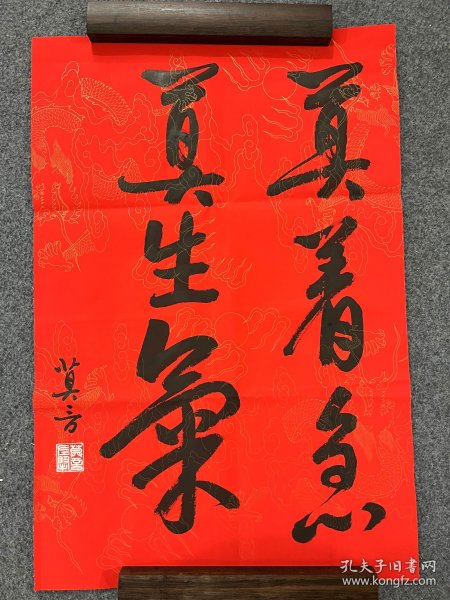 莫着急
莫生氣
莫言
孔夫子旧书网
www.kongfz.com